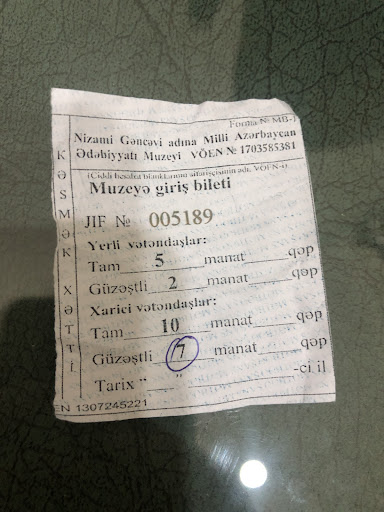 Forma № MB-1
Nizami Gəncəvi adına Milli Azərbaycan
Ədəbiyyatı Muzeyi VÖEN № 1703585381
(Ciddi hesabat blanklarının sifarişçisinin adı, VÖEN-i)
Muzeyə giriş bileti
JIF № 005189
Yerli vətəndaşlar:
Tam 5 manat qəp
Güzəştli 2 manat qəp
Xarici vətəndaşlar:
Tam 10 manat qəp
Güzəştli 7 manat qəp
Tarix “ ” -ci il
KƏSMƏK XƏTTİ
EN 1307245221